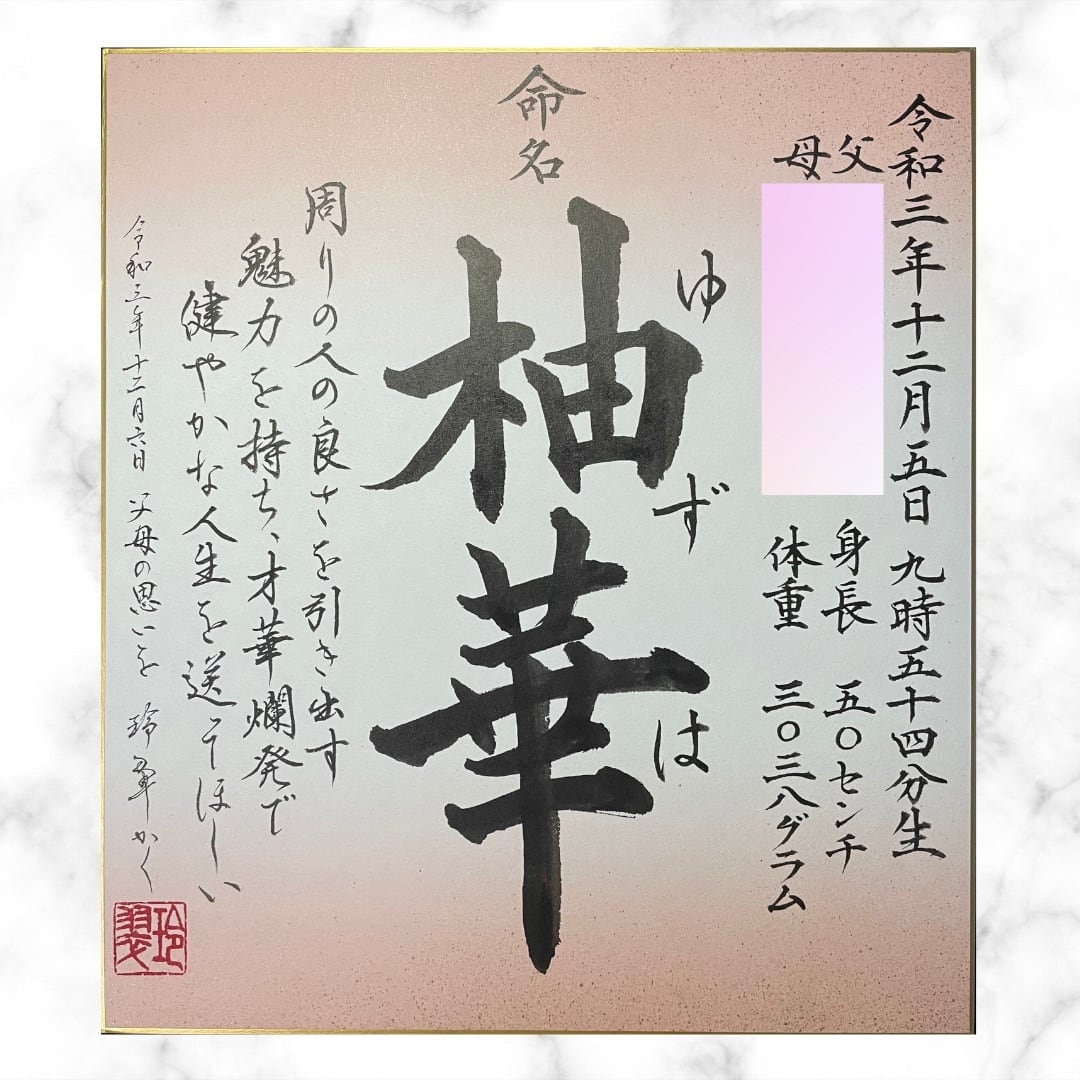 令和三年十二月五日 九時五十四分生
父
母
身長 五〇センチ
体重 三〇三八グラム
命名
柚華
ゆずは
周りの人の良さを引き出す
魅力を持ち、才華爛発で
健やかな人生を送ってほしい
令和三年十二月六日 父母の思いを 玲翠かく
玲翠